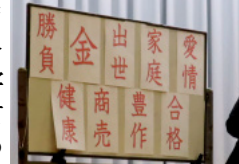 勝負
金
出世
家庭
愛情
健康
商売
豊作
合格